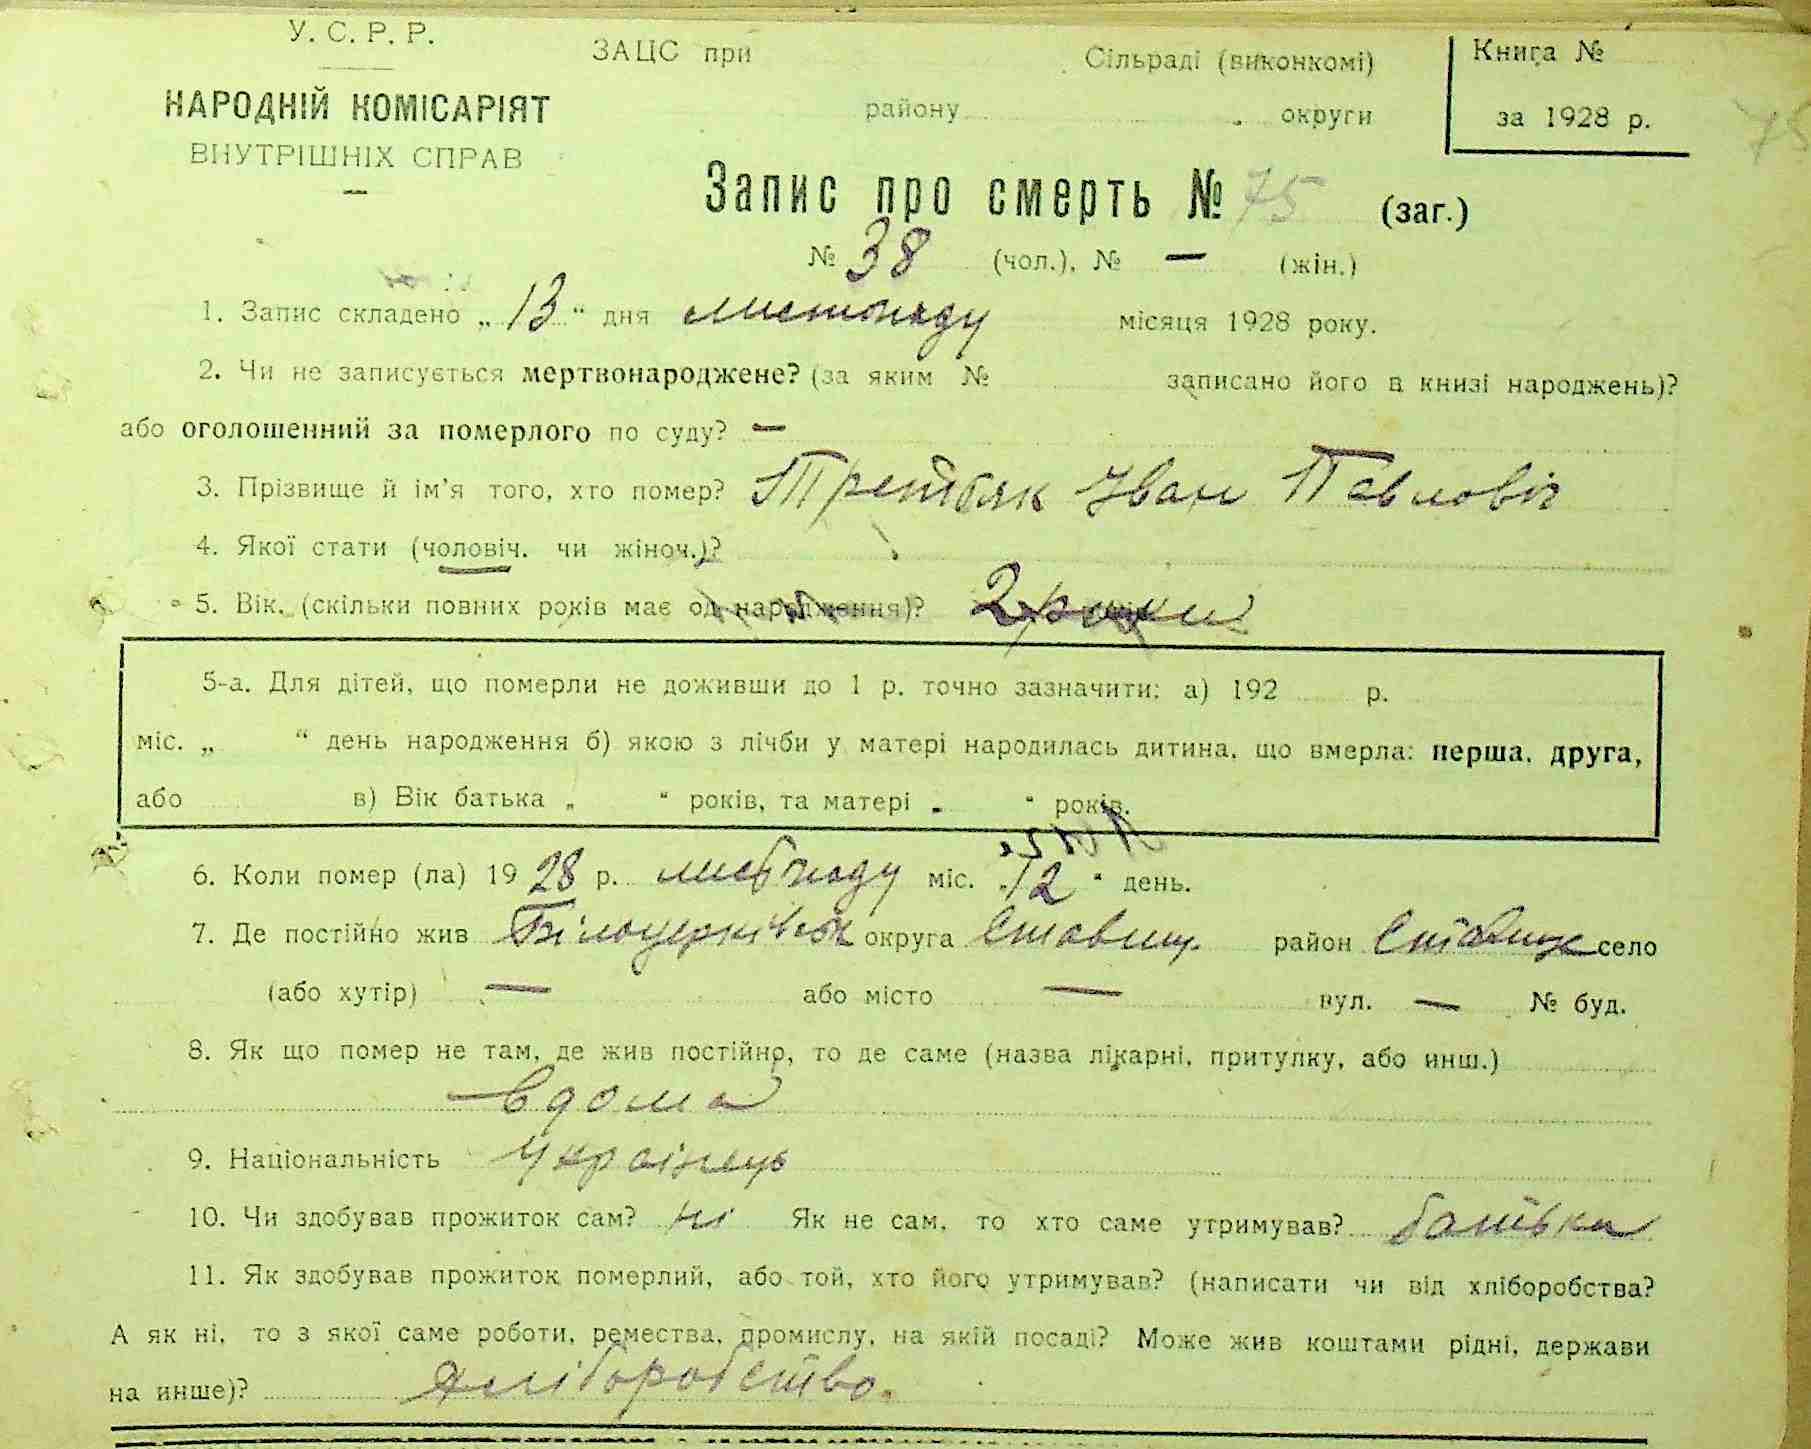 У. С. Р. Р.
НАРОДНІЙ КОМІСАРІЯТ
ВНУТРІШНІХ СПРАВ
ЗАЦС при Сільраді (виконкомі)
району округи
Книга №
за 1928 р.
75
Запис про смерть № 75 (заг.)
№ 38 (чол.), № — (жін.)
1. Запис складено „13“ дня листопаду місяця 1928 року.
2. Чи не записується мертвонароджене? (за яким № записано його в книзі народжень)?
або оголошенний за померлого по суду? —
3. Прізвище й ім’я того, хто помер? Третьяк Іван Павловіч
4. Якої стати (чоловіч. чи жіноч.)?
5. Вік. (скільки повних років має од народження)? 2 роки
5-а. Для дітей, що померли не доживши до 1 р. точно зазначити: а) 192 р.
міс. „ “ день народження б) якою з лічби у матері народилась дитина, що вмерла: перша, друга,
або в) Вік батька „ “ років, та матері „ “ років.
6. Коли помер (ла) 1928 р. листопаду міс. „12“ день.
7. Де постійно жив Білоцерківськ округа Ставищ район Ставище село
(або хутір) — або місто — вул. — № буд.
8. Як що помер не там, де жив постійно, то де саме (назва лікарні, притулку, або инш.)
вдома
9. Національність Українець
10. Чи здобував прожиток сам? ні Як не сам, то хто саме утримував? батьки
11. Як здобував прожиток померлий, або той, хто його утримував? (написати чи від хліборобства?
А як ні, то з якої саме роботи, ремества, промислу, на якій посаді? Може жив коштами рідні, держави
на инше)? хліборобство.